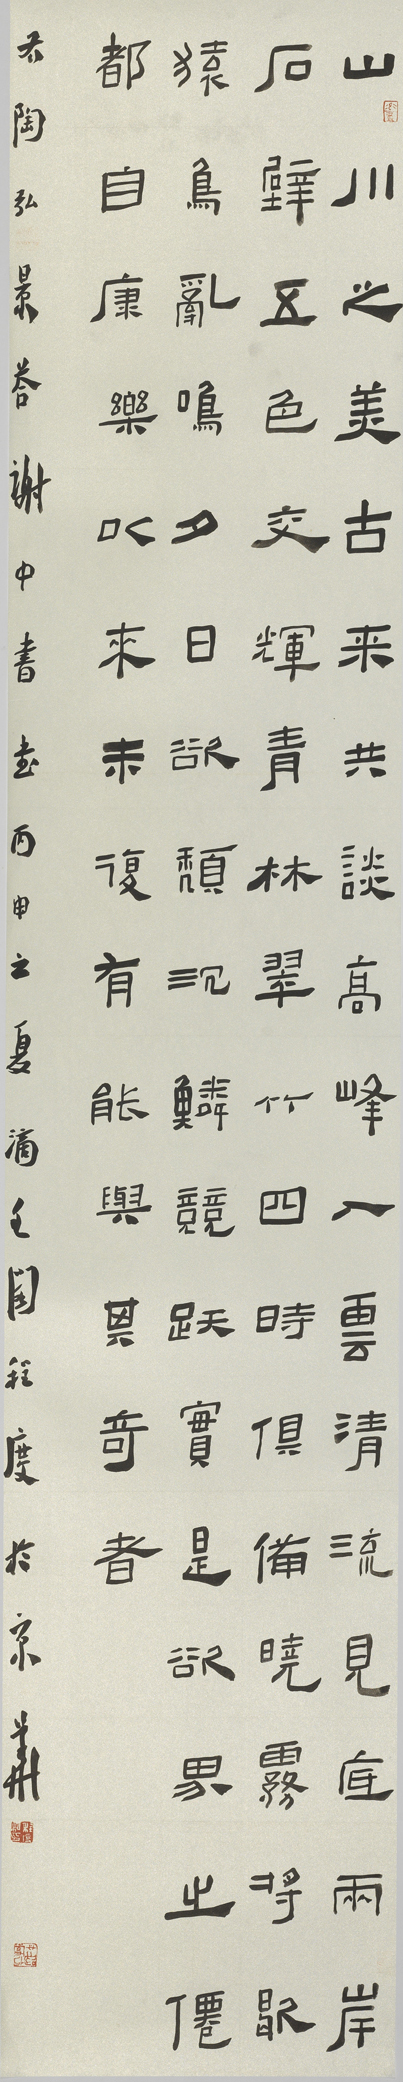 山川之美古来共談高峰入雲清流見底兩岸
石壁五色交輝青林翠竹四時俱備曉霧將歇
猿鳥亂鳴夕日欲頹沉鱗競跃實是欲界之僊
都自康樂以來未復有能與其奇者
右陶弘景答謝中書書丙申之夏閣程度於京華